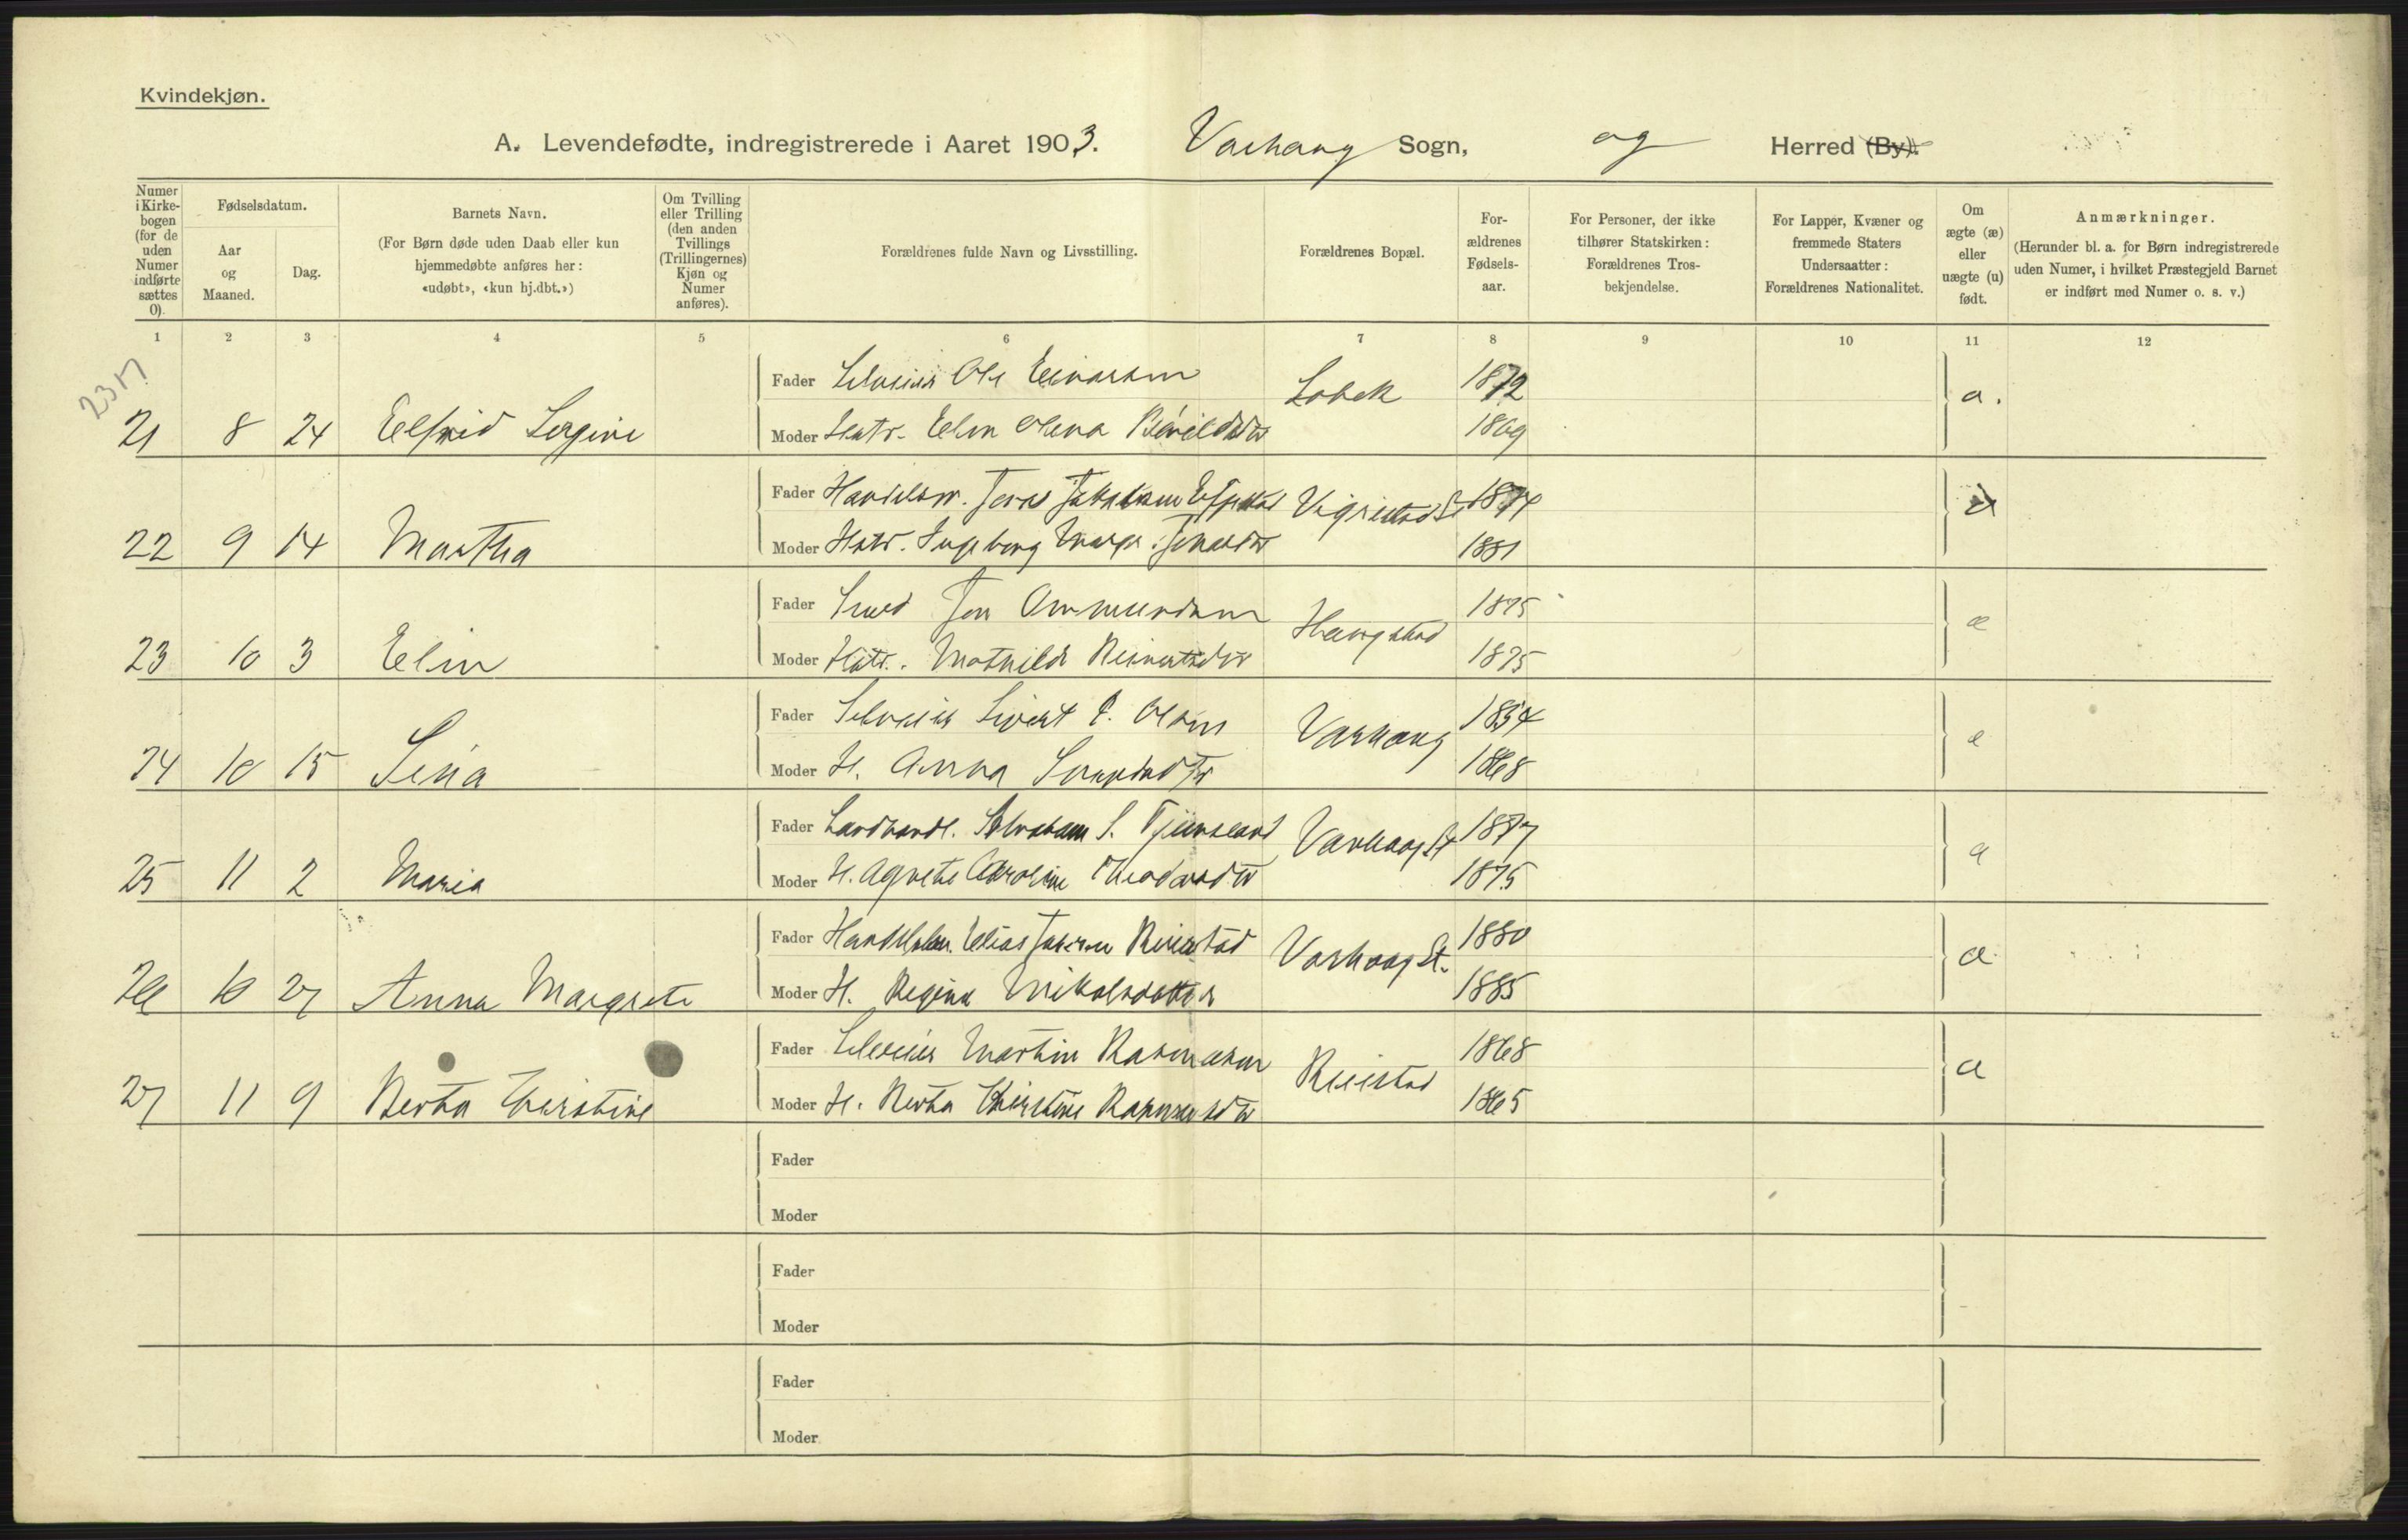 Kvindekjøn.
A. Levendefødte, indregistrerede i Aaret 1903. Varhaug Sogn, og Herred (By).
Numer i Kirkebogen (for de uden Numer indførte sættes 0).
Fødselsdatum.
Aar og Maaned.
Dag.
Barnets Navn.
(For Børn døde uden Daab eller kun hjemmedøbte anføres her: «udøbt», «kun hj.dbt.»)
Om Tvilling eller Trilling (den anden Tvillings (Trillingernes) Kjøn og Numer anføres).
Forældrenes fulde Navn og Livsstilling.
Forældrenes Bopæl.
For-ældrenes Fødsels-aar.
For Personer, der ikke tilhører Statskirken: Forældrenes Tros-bekjendelse.
For Lapper, Kvæner og fremmede Staters Undersaatter: Forældrenes Nationalitet.
Om ægte (æ) eller uægte (u) født.
Anmærkninger.
(Herunder bl. a. for Børn indregistrerede uden Numer, i hvilket Præstegjeld Barnet er indført med Numer o. s. v.)
1 2 3 4 5 6 7 8 9 10 11 12
Fader Selveier Ole Einarsen 1872
21 8 24 Elfrid Sergine Moder Hustr. Elen Olena 1869
Fader Handelsm. Jonas Vigrestad St 1874
22 9 14 Martha Moder Hustr. Ingeborg Marge. 1881
Fader Smed Jon Ommundsen Haugstad 1875
23 10 3 Elin Moder Hustr. Mathilde Reinertsdtr 1875
Fader Selveier Sivert P. Olsen Varhaug 1854
24 10 15 Sina Moder H. Anna 1868
Fader Landhandl. Abraham S. Tjensland Varhaug St 1877
25 11 2 Maria Moder H. Agnethe Caroline Theodorsdtr 1875
Fader Handelsm. Elias Reiestad Varhaug St. 1880
26 10 27 Anna Margrete Moder H. Regina Mikalsdatter 1885
Fader Selveier Martin Rasmusen Reiestad 1868
27 11 9 Berta Kirstine Moder H. Berta Kirstine Rasmusdtr 1865
Fader
Moder
Fader
Moder
Fader
Moder